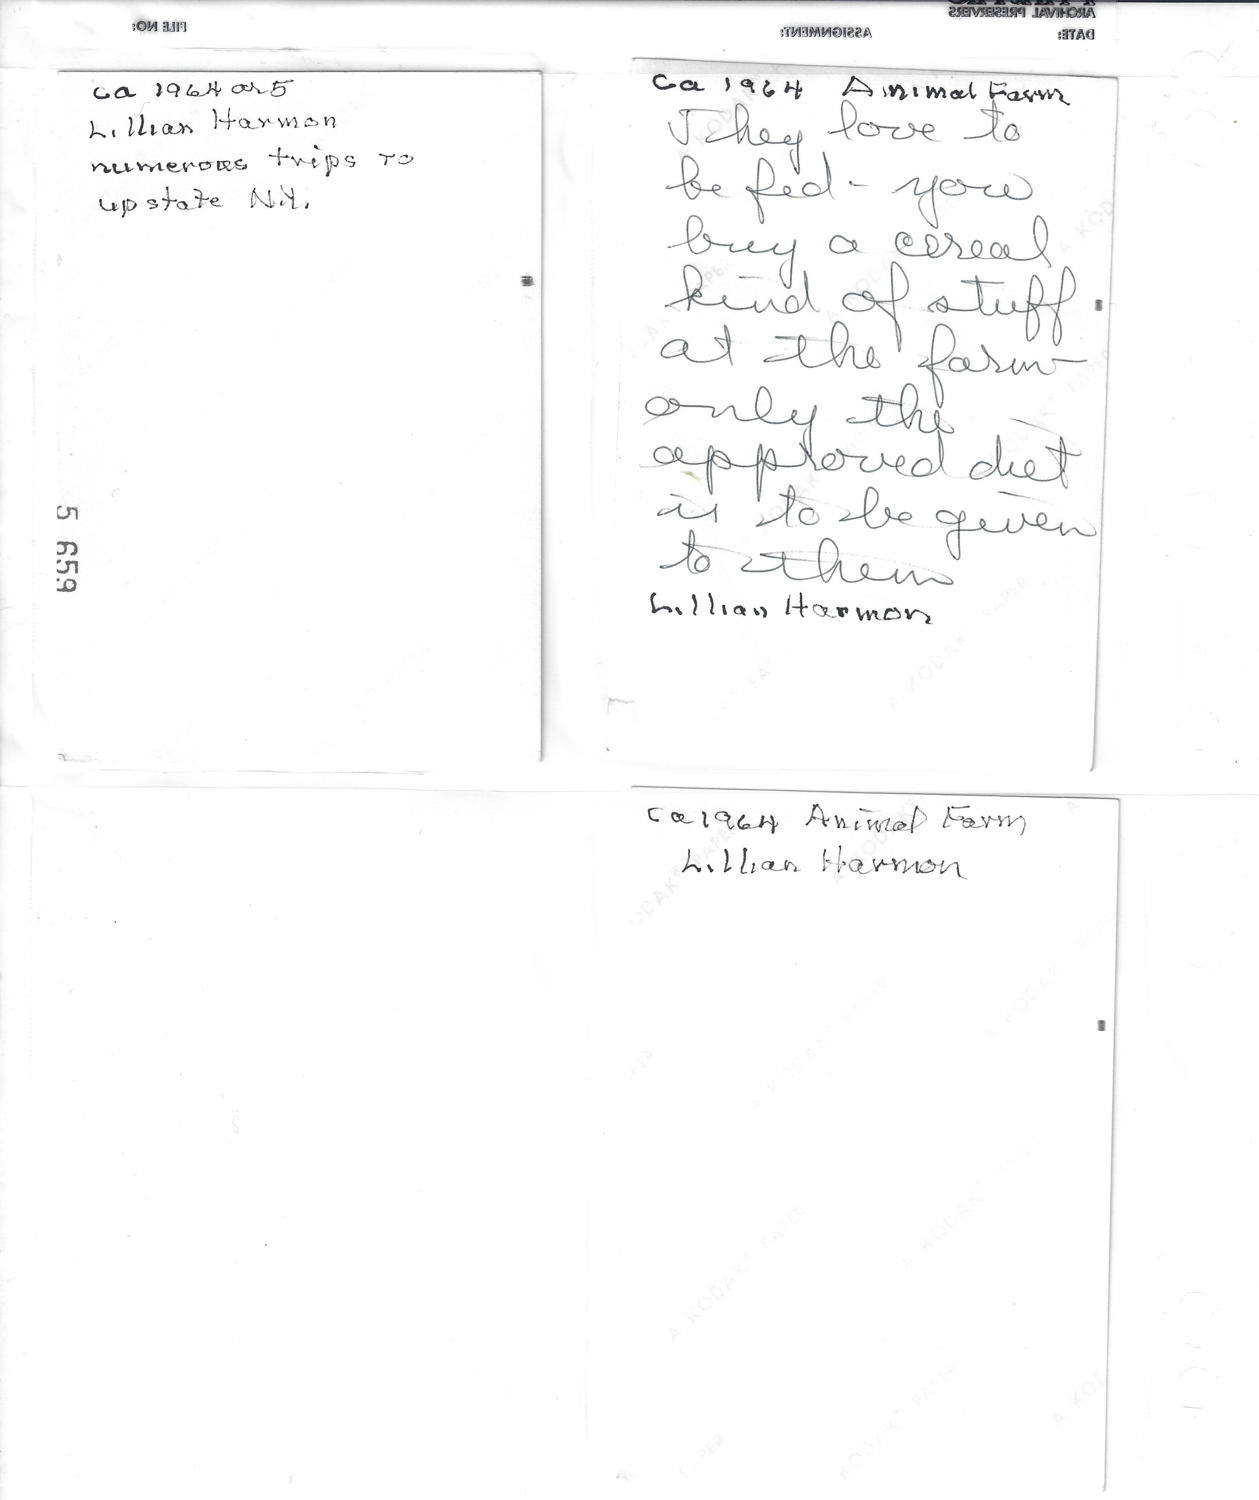 ARCHIVAL PRESERVERS
FILE NO:
ASSIGNMENT:
DATE:
ca 1964 or 5
Lillian Harmon
numerous trips to
upstate N.Y.
5 659
ca 1964 Animal Farm
They love to
be fed - you
buy a cereal
kind of stuff
at the farm -
only the
approved diet
is to be given
to them
Lillian Harmon
A KODAK PAPER
ca 1964 Animal Farm
Lillian Harmon
A KODAK PAPER